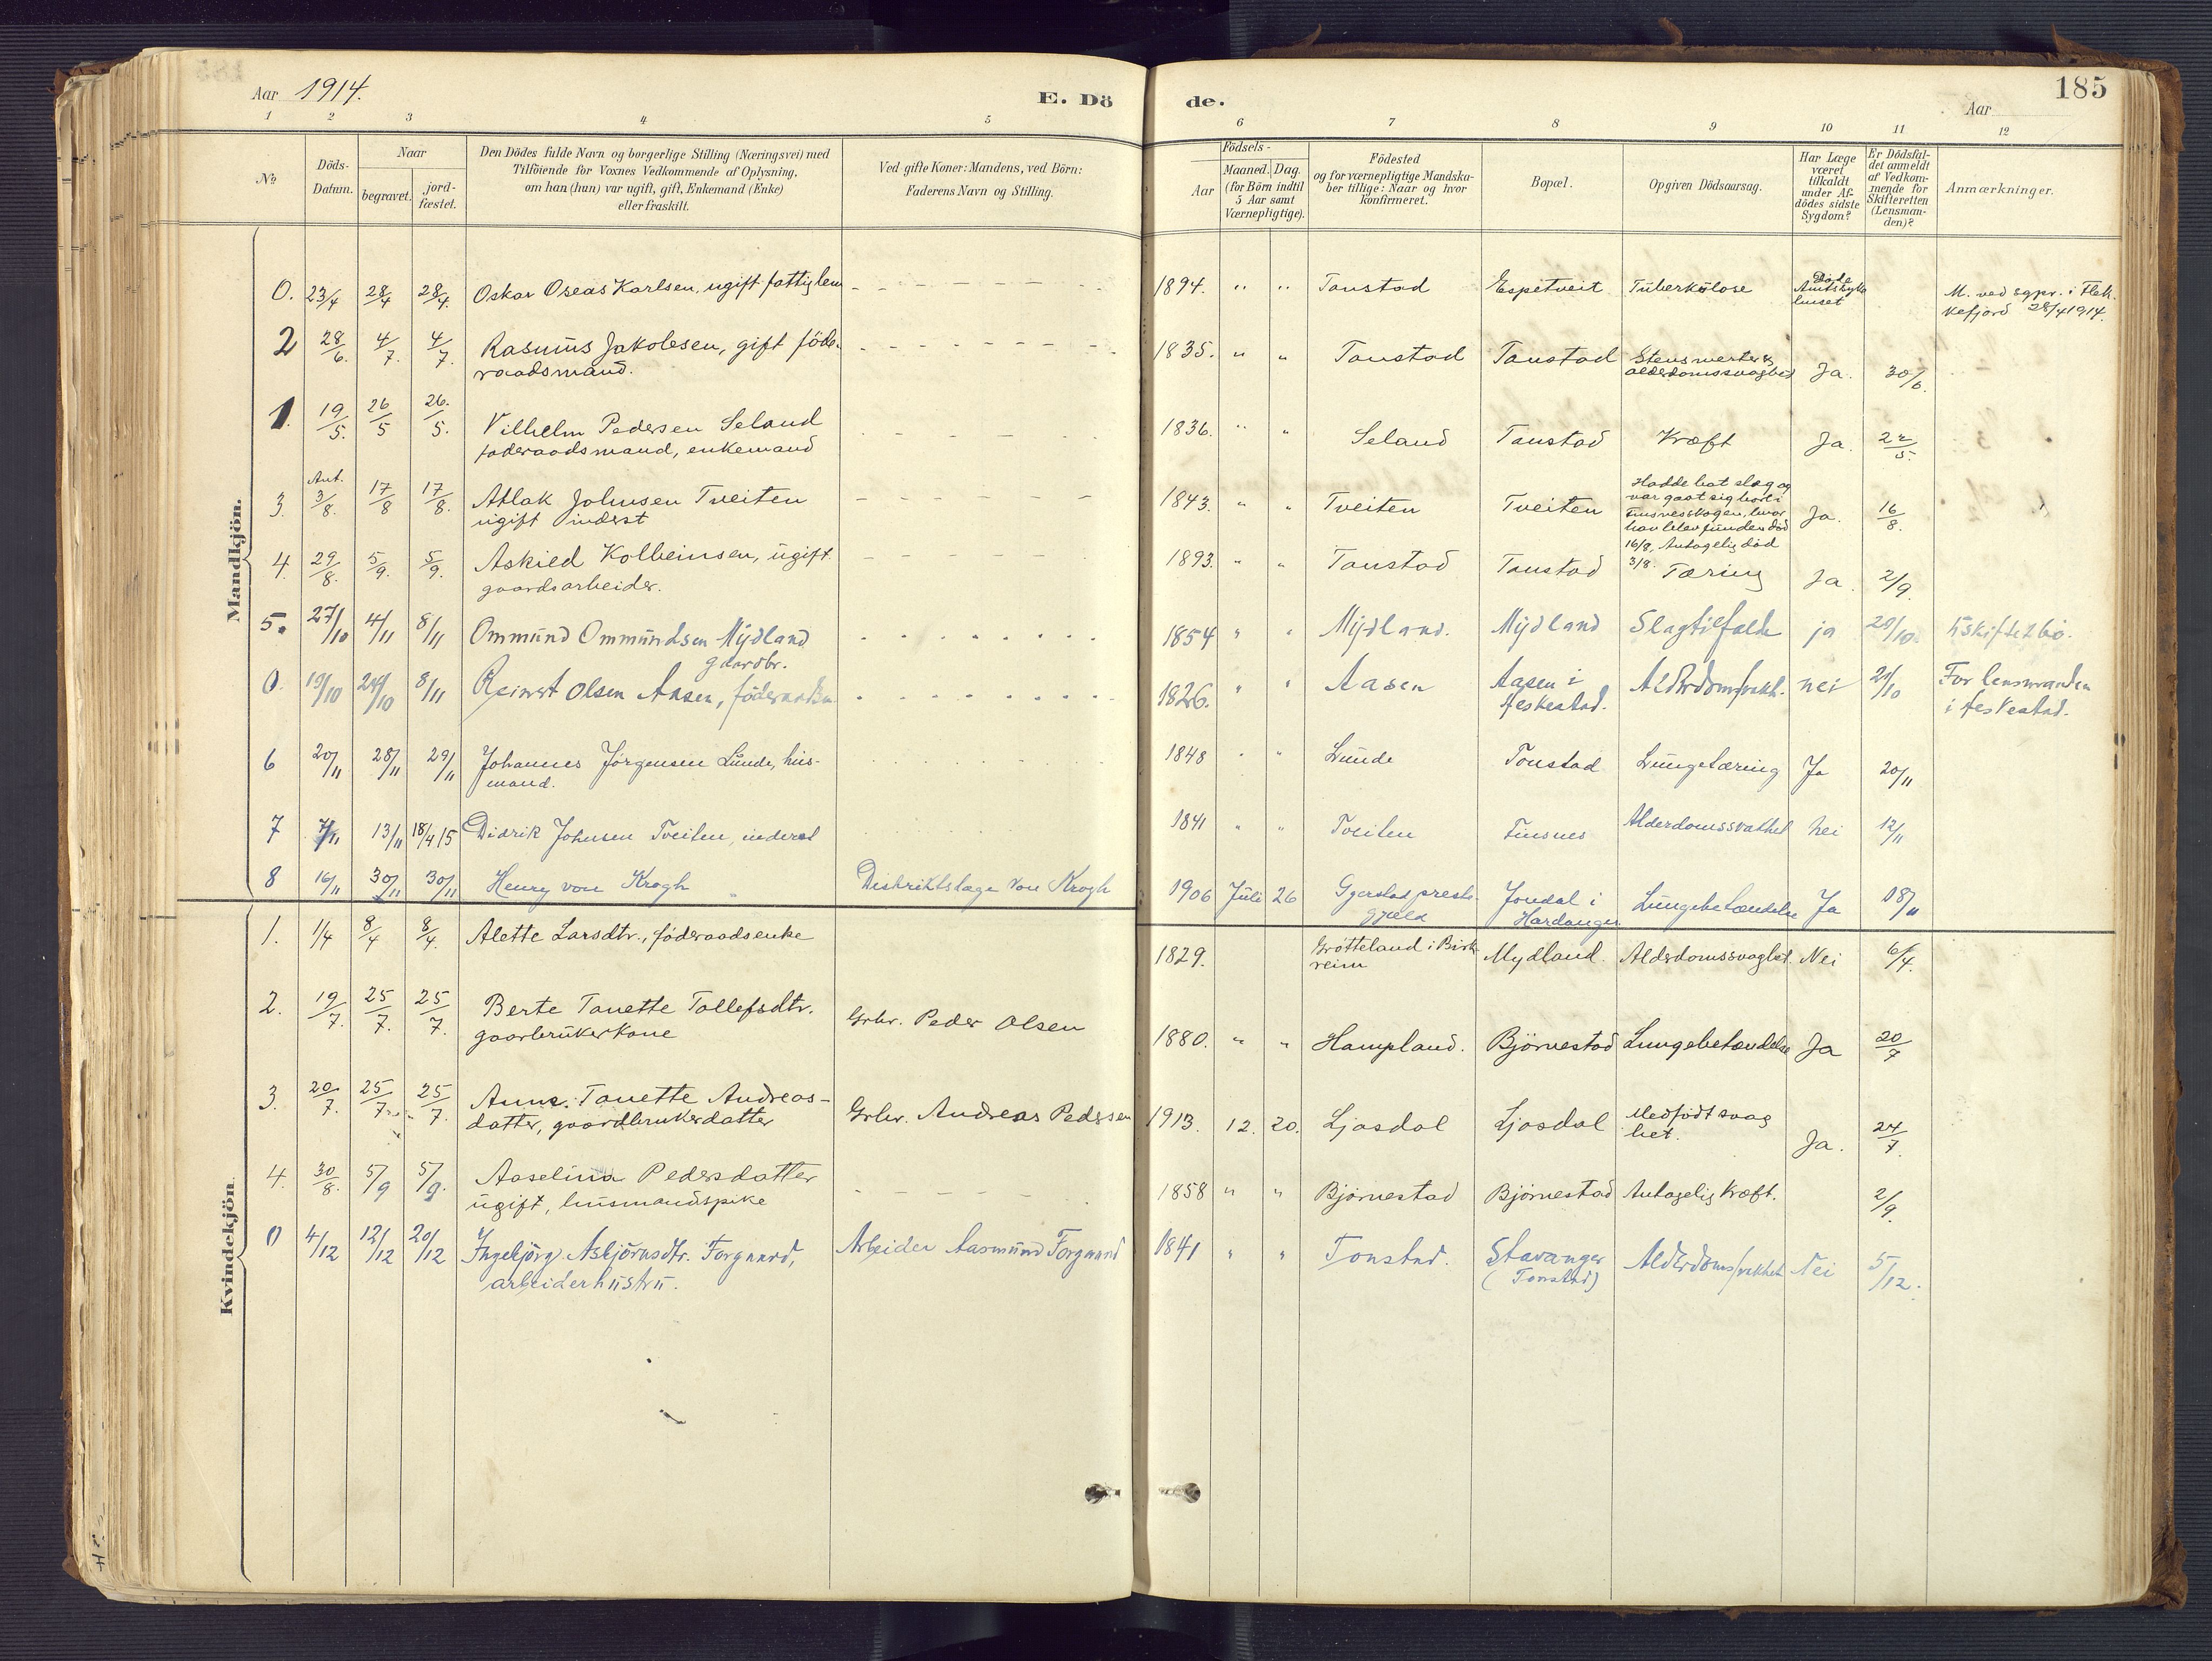 Aar 1914.
E. Dö de.
185
Aar
1 2 3 4 5 6 7 8 9 10 11 12
No
Döds-Datum.
Naar
begravet.
jord-fæstet.
Den Dödes fulde Navn og borgerlige Stilling (Næringsvei) med
Tilföiende for Voxnes Vedkommende af Oplysning,
om han (hun) var ugift, gift, Enkemand (Enke)
eller fraskilt.
Ved gifte Koner: Mandens, ved Börn:
Faderens Navn og Stilling.
Födsels-
Aar
Maaned. Dag.
(for Börn indtil
5 Aar samt
Værnepligtige).
Födested
og for værnepligtige Mandska-
ber tillige: Naar og hvor
konfirmeret.
Bopæl.
Opgiven Dödsaarsag.
Har Læge
været
tilkaldt
under Af-
dödes sidste
Sygdom?
Er Dödsfal-
det anmeldt
af Vedkom-
mende for
Skifteretten
(Lensman-
den)?
Anmærkninger.
Mandkjön.
0. 23/4 28/4 28/4 Oskar Oseas Karlsen, ugift fattiglem - - - 1894. " " Tonstad Espetveit Tuberkulose Døde Amtssykehuset
M. ved sgpr. i Flek-
kefjord 28/4 1914.
2 28/6. 4/7. 4/7. Rasmus Jakobsen, gift föde-
raadsmand. - - - 1835. " " Tonstad Tonstad Stensmerter &
alderdomssvaghed Ja. 30/6.
1. 19/5. 26/5 26/5. Vilhelm Pedersen Seland
föderaadsmand, enkemand - - - 1836. " " Seland Tonstad Kræft Ja. 22/5.
3. Ant. 3/8. 17/8 17/8. Atlak Johnsen Tveiten
ugift inderst - - - 1843. " " Tveiten Tveiten Hadde hat slag og
var gaat sig bort i
Finsnesskogen, hvor
han blev funden död
16/8. Antagelig död
3/8. Ja. 16/8.
4. 29/8. 5/9. 5/9. Askild Kolbeinsen, ugift
gaardsarbeider. - - - 1893. " " Tonstad Tonstad Tæring Ja. 2/9.
5. 27/10 4/11 8/11 Ommund Ommundsen Mydland
gaardbr. - - - 1854 " " Mydland. Mydland Slagtilfælde ja 29/10. Uskiftet bo.
0. 19/10 24/10 8/11 Reinert Olsen Aasen, föderaadsm. - - - 1826. " " Aasen Aasen i
Heskestad. Alderdomssvakh. nei 21/10 For lensmanden
i Heskestad.
6 20/11 28/11 29/11 Johannes Jörgensen Lunde, hus-
mand. - - - 1848 " " Lunde Tonstad Lungetæring Ja 20/11
7 7/11 13/11 18/4 15 Didrik Johnsen Tveiten, inderst 1841 " " Tveiten Finsnes Alderdomssvakhet Nei 12/11
8 16/11 30/11 30/11 Henry von Krogh Distriktslæge von Krogh 1906 Juli 26 Gjerstad preste-
gjeld Jondal i
Hardanger Lungebetændelse Ja 18/11
Kvindekjön.
1. 1/4 8/4 8/4. Alette Larsdtr., föderaadsenke 1829. Grötteland i Birk-
reim Mydland. Alderdomssvaghet. Nei 6/4.
2. 19/7. 25/7. 25/7. Berte Tonette Tollefsdtr.
gaarbrukerkone Grbr. Peder Olsen 1880. " " Hampland. Björnestad Lungebetændelse Ja 20/7
3. 20/7. 25/7. 25/7. Anna Tonette Andreas-
datter, gaardbrukerdatter Grbr. Andreas Pedersen 1913. 12. 20. Ljosdal Ljosdal Medfödt svag
het. Ja. 24/7.
4. 30/8. 5/9 5/9. Aaselina Pedersdatter
ugift, husmandspike - - - 1858 " " Björnestad Björnestad Antagelig Kræft. 2/9.
0 4/12 12/12 20/12 Ingebjörg Asbjörnsdtr. Forgaard,
arbeiderhustru. Arbeider Aasmund Forgaard 1841 " " Tonstad. Stavanger
(Tonstad) Alderdomssvakhet Nei 5/12.